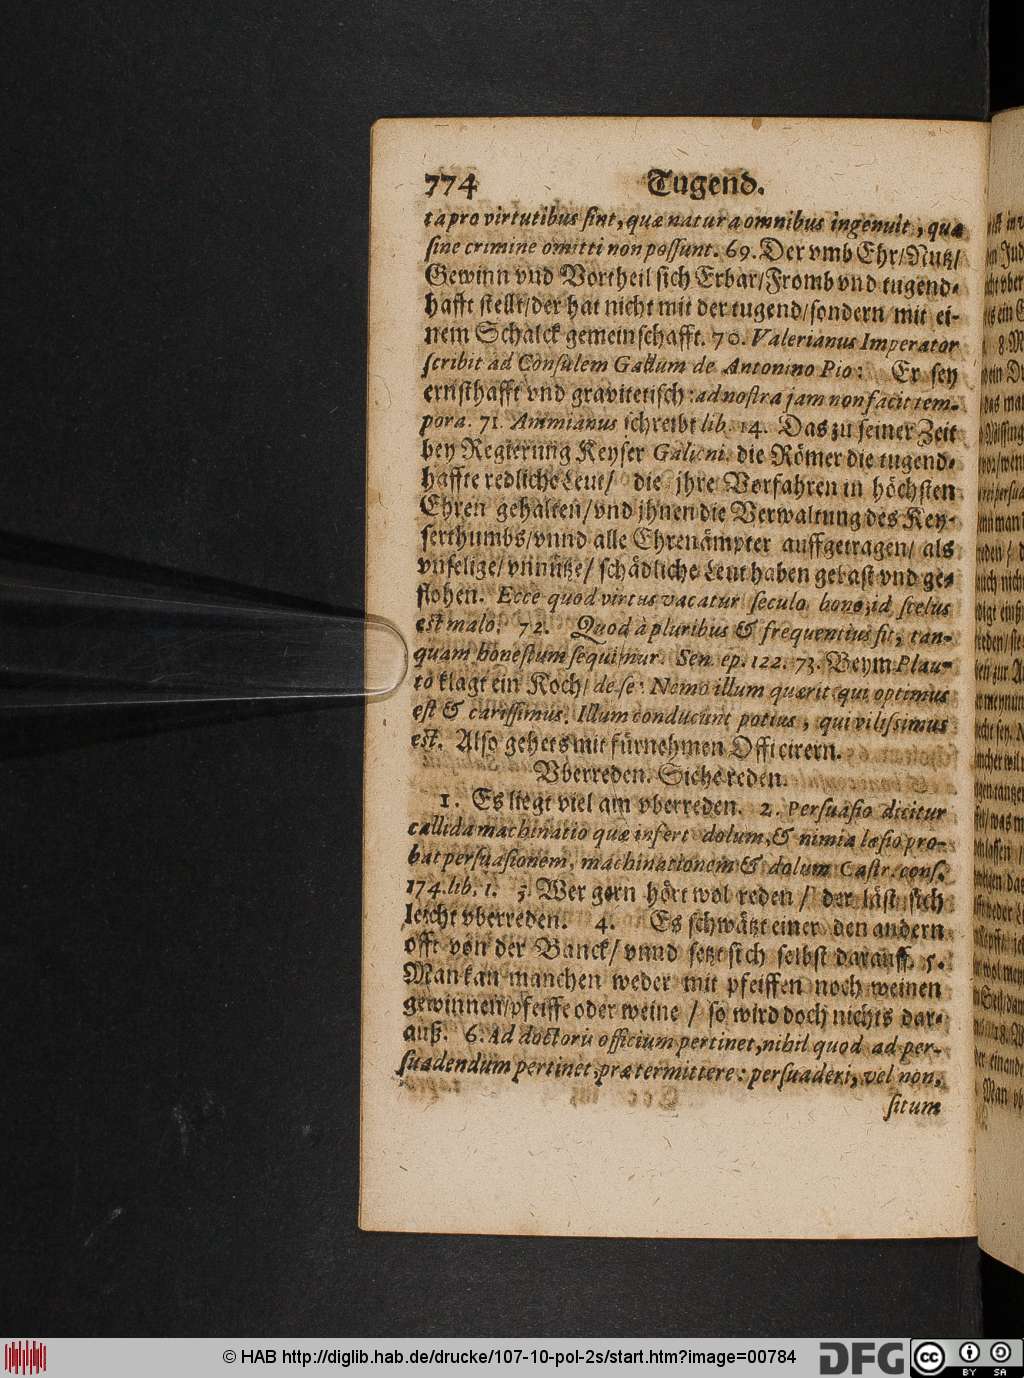 774 Tugend.
ta pro virtutibus ſint, quæ natura omnibus ingenuit, quæ
ſine crimine omitti non poſſunt. 69. Der vmb Ehr/Nutz/
Gewinn vnd Vortheil ſich Erbar/Fromb vnd tugend-
hafft ſtellt/der hat nicht mit der tugend/ſondern mit ei-
nem Schalck gemeinſchafft. 70. Valerianus Imperator
ſcribit ad Conſulem Gallum de Antonino Pio: Er ſey
ernſthafft vnd gravitetiſch: ad noſtra jam non facit tem-
pora. 71. Ammianus ſchreibt lib. 14. Das zu ſeiner Zeit
bey Regierung Keyſer Galieni. die Römer die tugend-
haffte redliche Leut/ die jhre Vorfahren in höchſten
Ehren gehalten/vnd jhnen die Verwaltung des Key-
ſerthumbs/vnnd alle Ehrenämpter auffgetragen/ als
vnſelige/vnnütze/ ſchädliche Leut haben gehaſt vnd ge-
flohen. Ecce quod virtus vacatur ſeculo bono, id ſcelus
eſt malo. 72. Quod à pluribus & frequentius ſit, tan-
quam honeſtum ſequimur. Sen. ep. 122. 73. Beym Plau-
to klagt ein Koch/ de ſe: Nemo illum quærit qui optimus
eſt & cariſſimus. Illum conducunt potius, qui viliſſimus
eſt. Alſo gehets mit fürnehmen Officirern.
Vberreden. Siehe reden.
1. Es liegt viel am vberreden. 2. Perſuaſio dicitur
callida machinatio quæ infert dolum, & nimia læſio pro-
bat perſuaſionem, machinationem & dolum Caſtr. conſ.
174. lib. 1. 3. Wer gern hört wol reden / der läſt ſich
leicht vberreden. 4. Es ſchwätzt einer den andern
offt von der Banck/ vnnd ſetzt ſich ſelbſt darauff. 5.
Man kan manchen weder mit pfeiffen noch weinen
gewinnen/pfeiffe oder weine / ſo wird doch nichts dar-
auß. 6. Ad doctoris officium pertinet, nihil quod ad per-
ſuadendum pertinet, prætermittere: perſuaderi, vel non,
ſitum
© HAB http://diglib.hab.de/drucke/107-10-pol-2s/start.htm?image=00784
DFG
cc BY SA